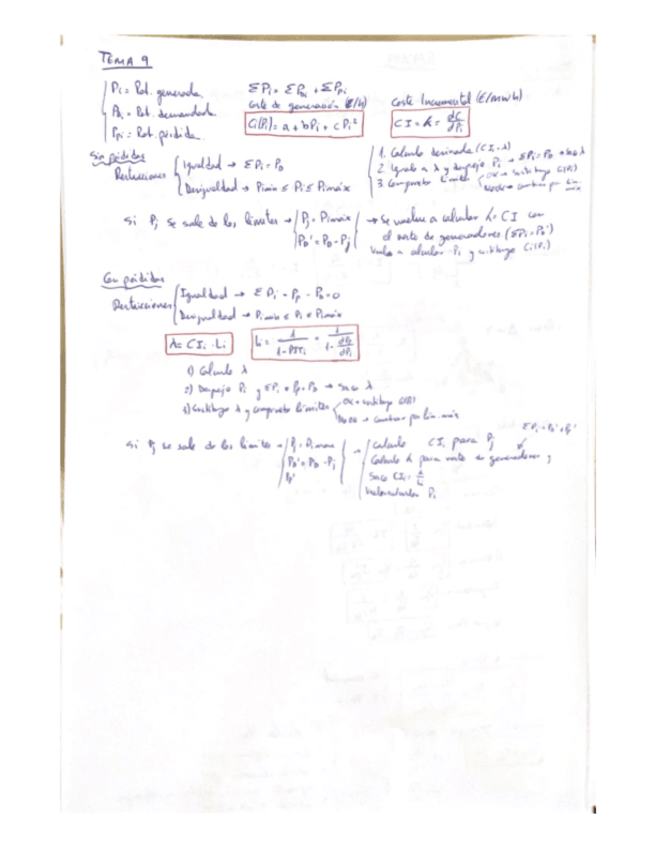 TEMA 9
Pi = Pot. generada
PDi = Pot. demandada
Ppi = Pot. pérdida
ΣPi = ΣPDi + ΣPpi
Coste de generación (€/h)
Ci(Pi) = a + bPi + cPi²
Coste Incremental (€/MWh)
CI = λ = dC/dPi
Sin pérdidas
Restricciones
Igualdad → ΣPi = PD
Desigualdad → Pimin ≤ Pi ≤ Pimáx
1. Calculo derivada (CI = λ)
2. Igualo a λ y despejo Pi → ΣPi = PD → saco λ
3. Compruebo límites
OK → sustituyo C(Pi)
NO OK → cambiar por lim. máx
Si Pj se sale de los límites →
Pj = Pjmáx
PD' = PD - Pj
→ Se vuelve a calcular λ = CI con
el resto de generadores (ΣPi = PD')
Vuelvo a calcular Pi y sustituyo Ci(Pi)
Con pérdidas
Restricciones
Igualdad → ΣPi - Pp - PD = 0
Desigualdad → Pimin ≤ Pi ≤ Pimáx
λ = CIi · Li
Li = 1/(1 - PITi) = 1/(1 - dPp/dPi)
1) Calculo λ
2) Despejo Pi y ΣPi = Pp + PD → saco λ
3) Sustituyo λ y compruebo límites
OK → sustituyo C(Pi)
No OK → cambiar por lim. máx
Si Pj se sale de los límites →
Pj = Pjmax
PD' = PD - Pj
Pp'
Calculo CI para Pj
Calculo λ para resto de generadores y
ΣPi = PD' + Pp'
saco CIi = λ/Li
Pi